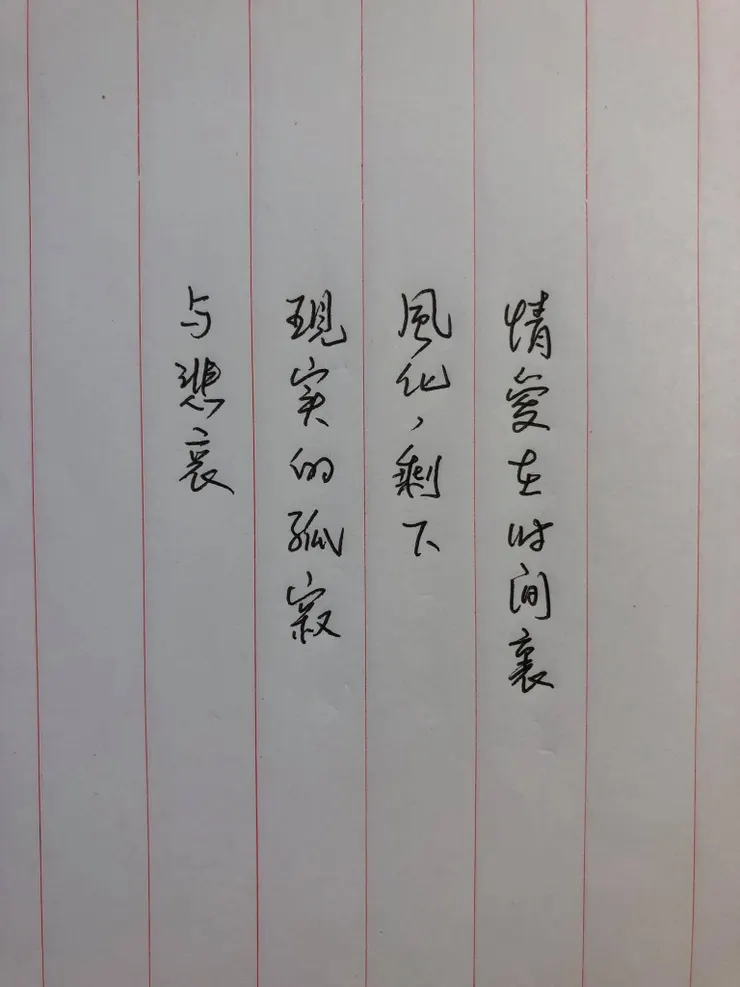 情愛在时间裏
風化，剩下
現实的孤寂
与悲哀